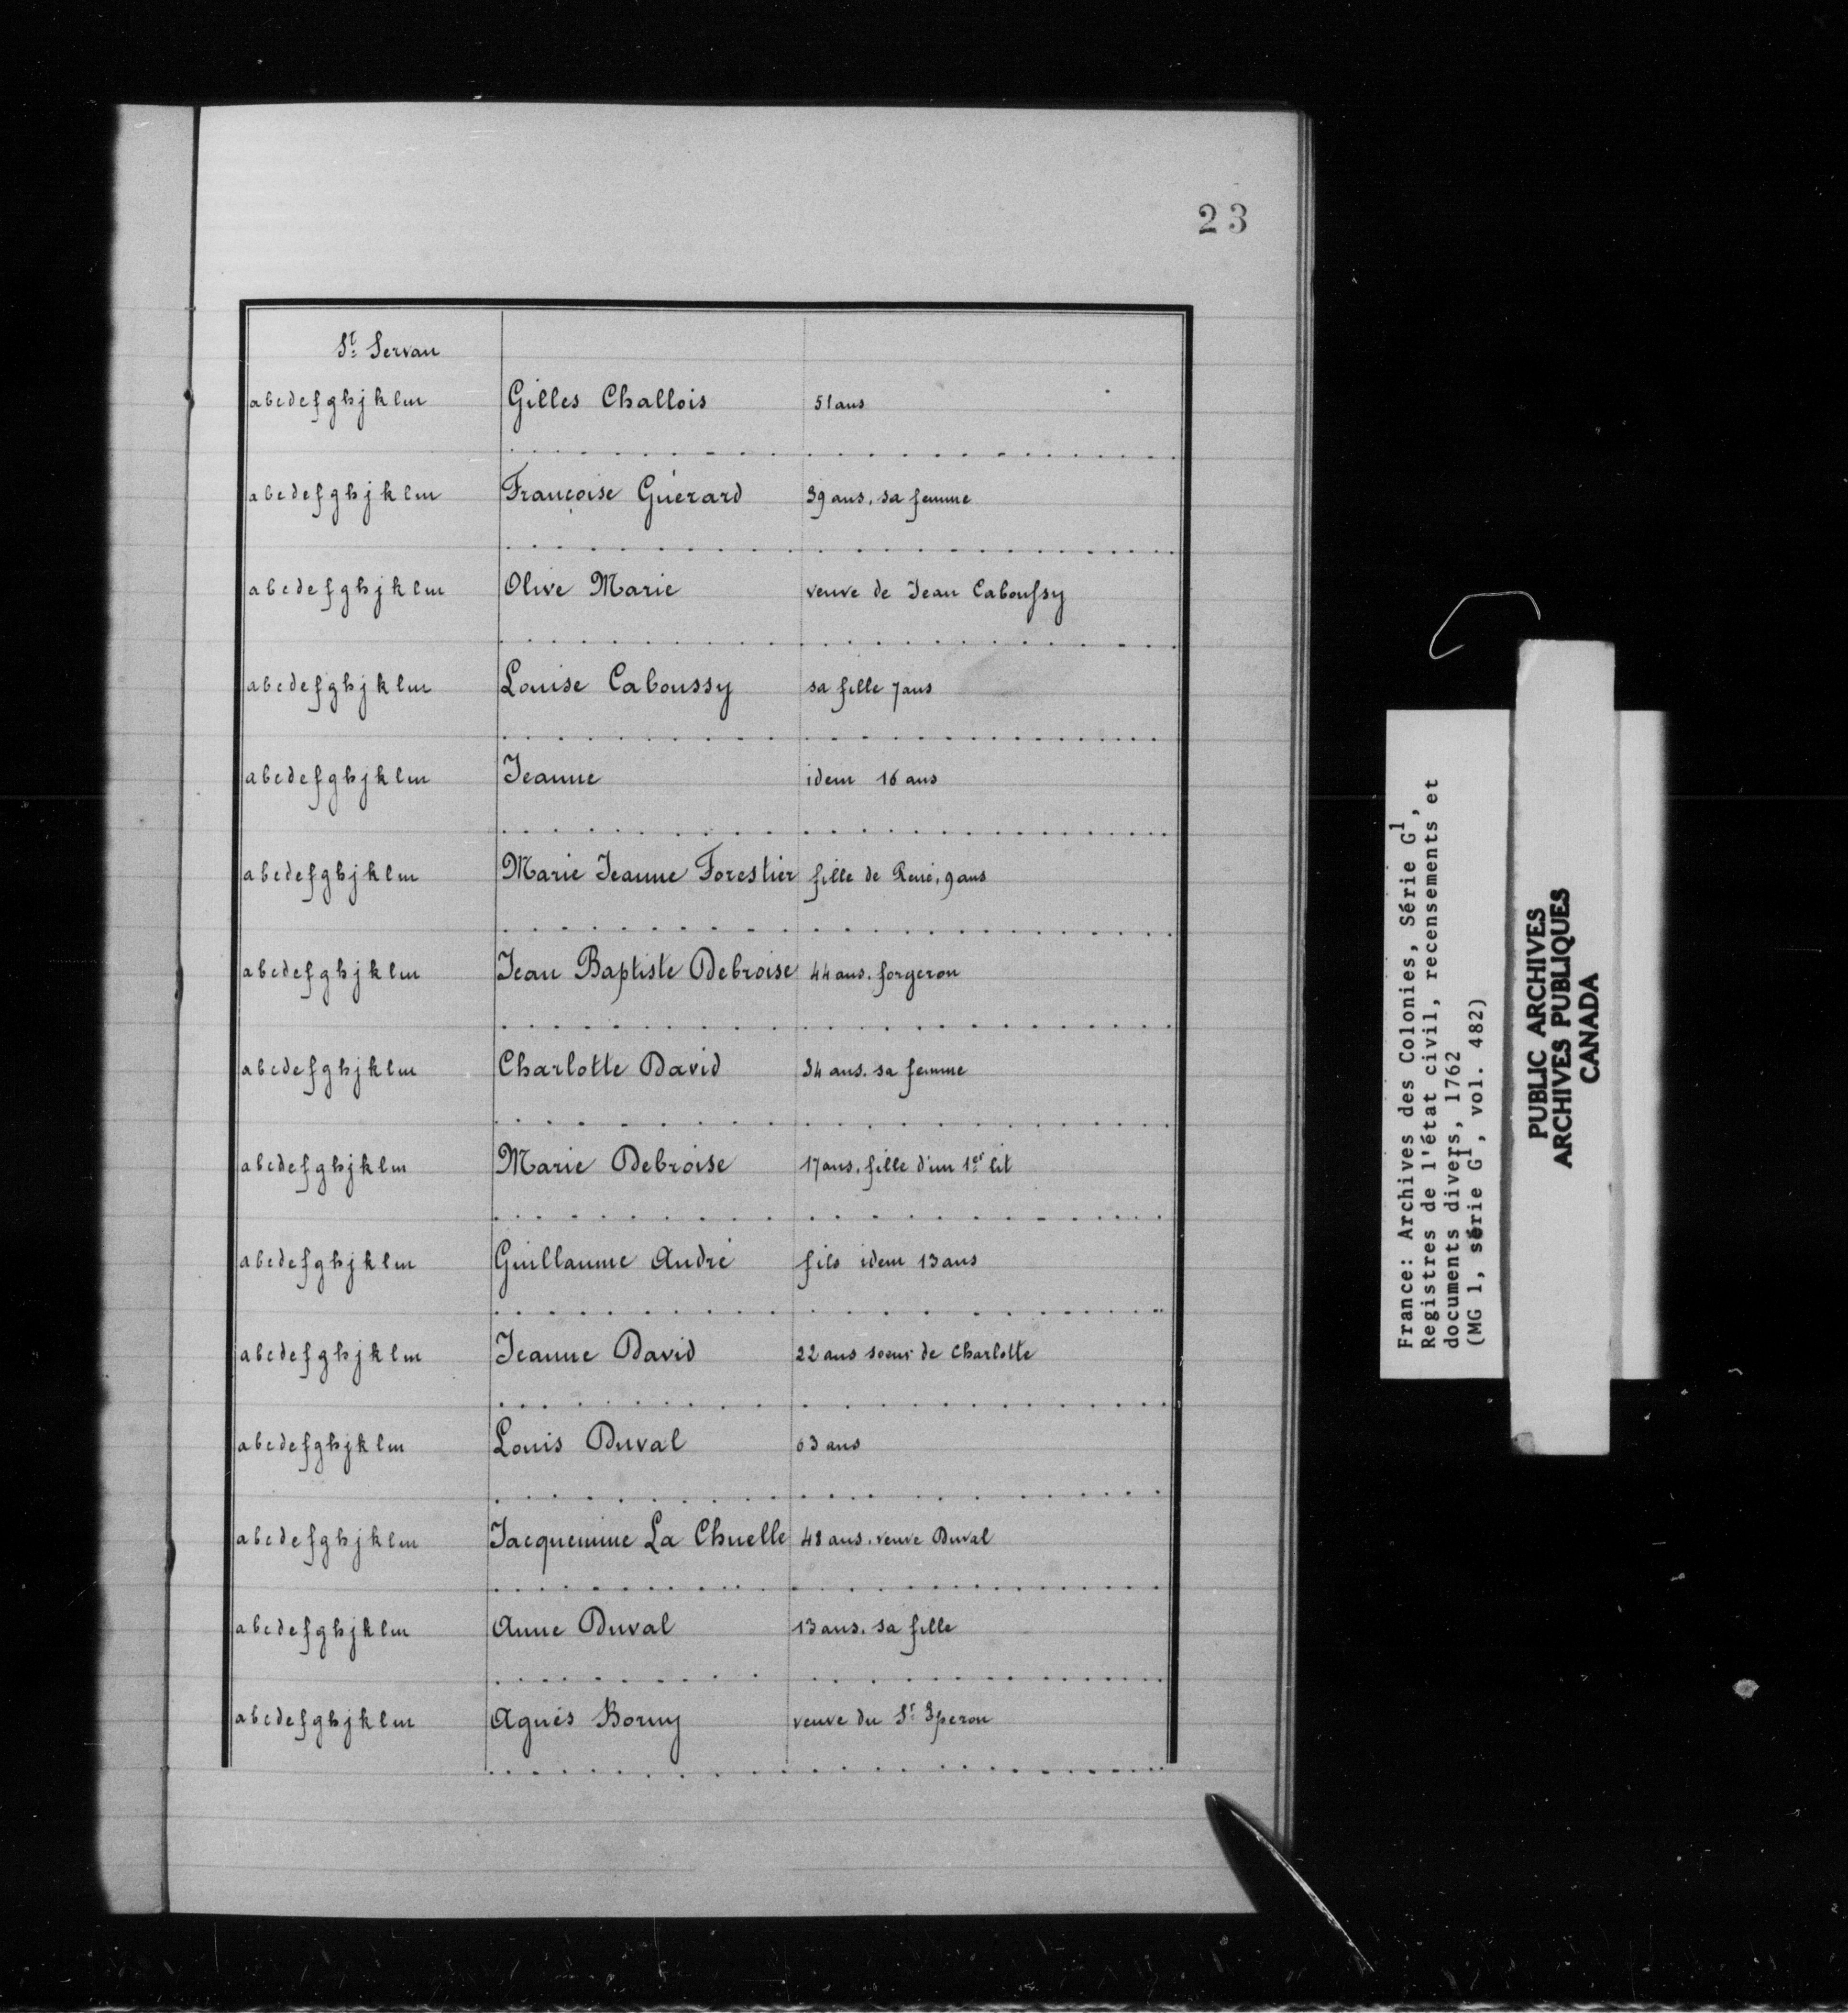 23
St Servan
abcdefghjklm Gilles Challois 51 ans
abcdefghjklm Françoise Guérard 39 ans, sa femme
abcdefghjklm Olive Marie veuve de Jean Caboussy
abcdefghjklm Louise Caboussy sa fille 7 ans
abcdefghjklm Jeanne idem 16 ans
abcdefghjklm Marie Jeanne Forestier fille de René, 9 ans
abcdefghjklm Jean Baptiste Debroise 44 ans. forgeron
abcdefghjklm Charlotte David 34 ans. sa femme
abcdefghjklm Marie Debroise 17 ans, fille d'un 1er lit
abcdefghjklm Guillaume André fils idem 13 ans
abcdefghjklm Jeanne David 22 ans soeur de Charlotte
abcdefghjklm Louis Duval 63 ans
abcdefghjklm Jacquemine La Chuelle 48 ans, veuve Duval
abcdefghjklm Anne Duval 13 ans, sa fille
abcdefghjklm Agnés veuve du Sr
France: Archives des Colonies, Série G1,
Registres de l'état civil, recensements et
documents divers, 1762
(MG 1, série G1, vol. 482)
PUBLIC ARCHIVES
ARCHIVES PUBLIQUES
CANADA